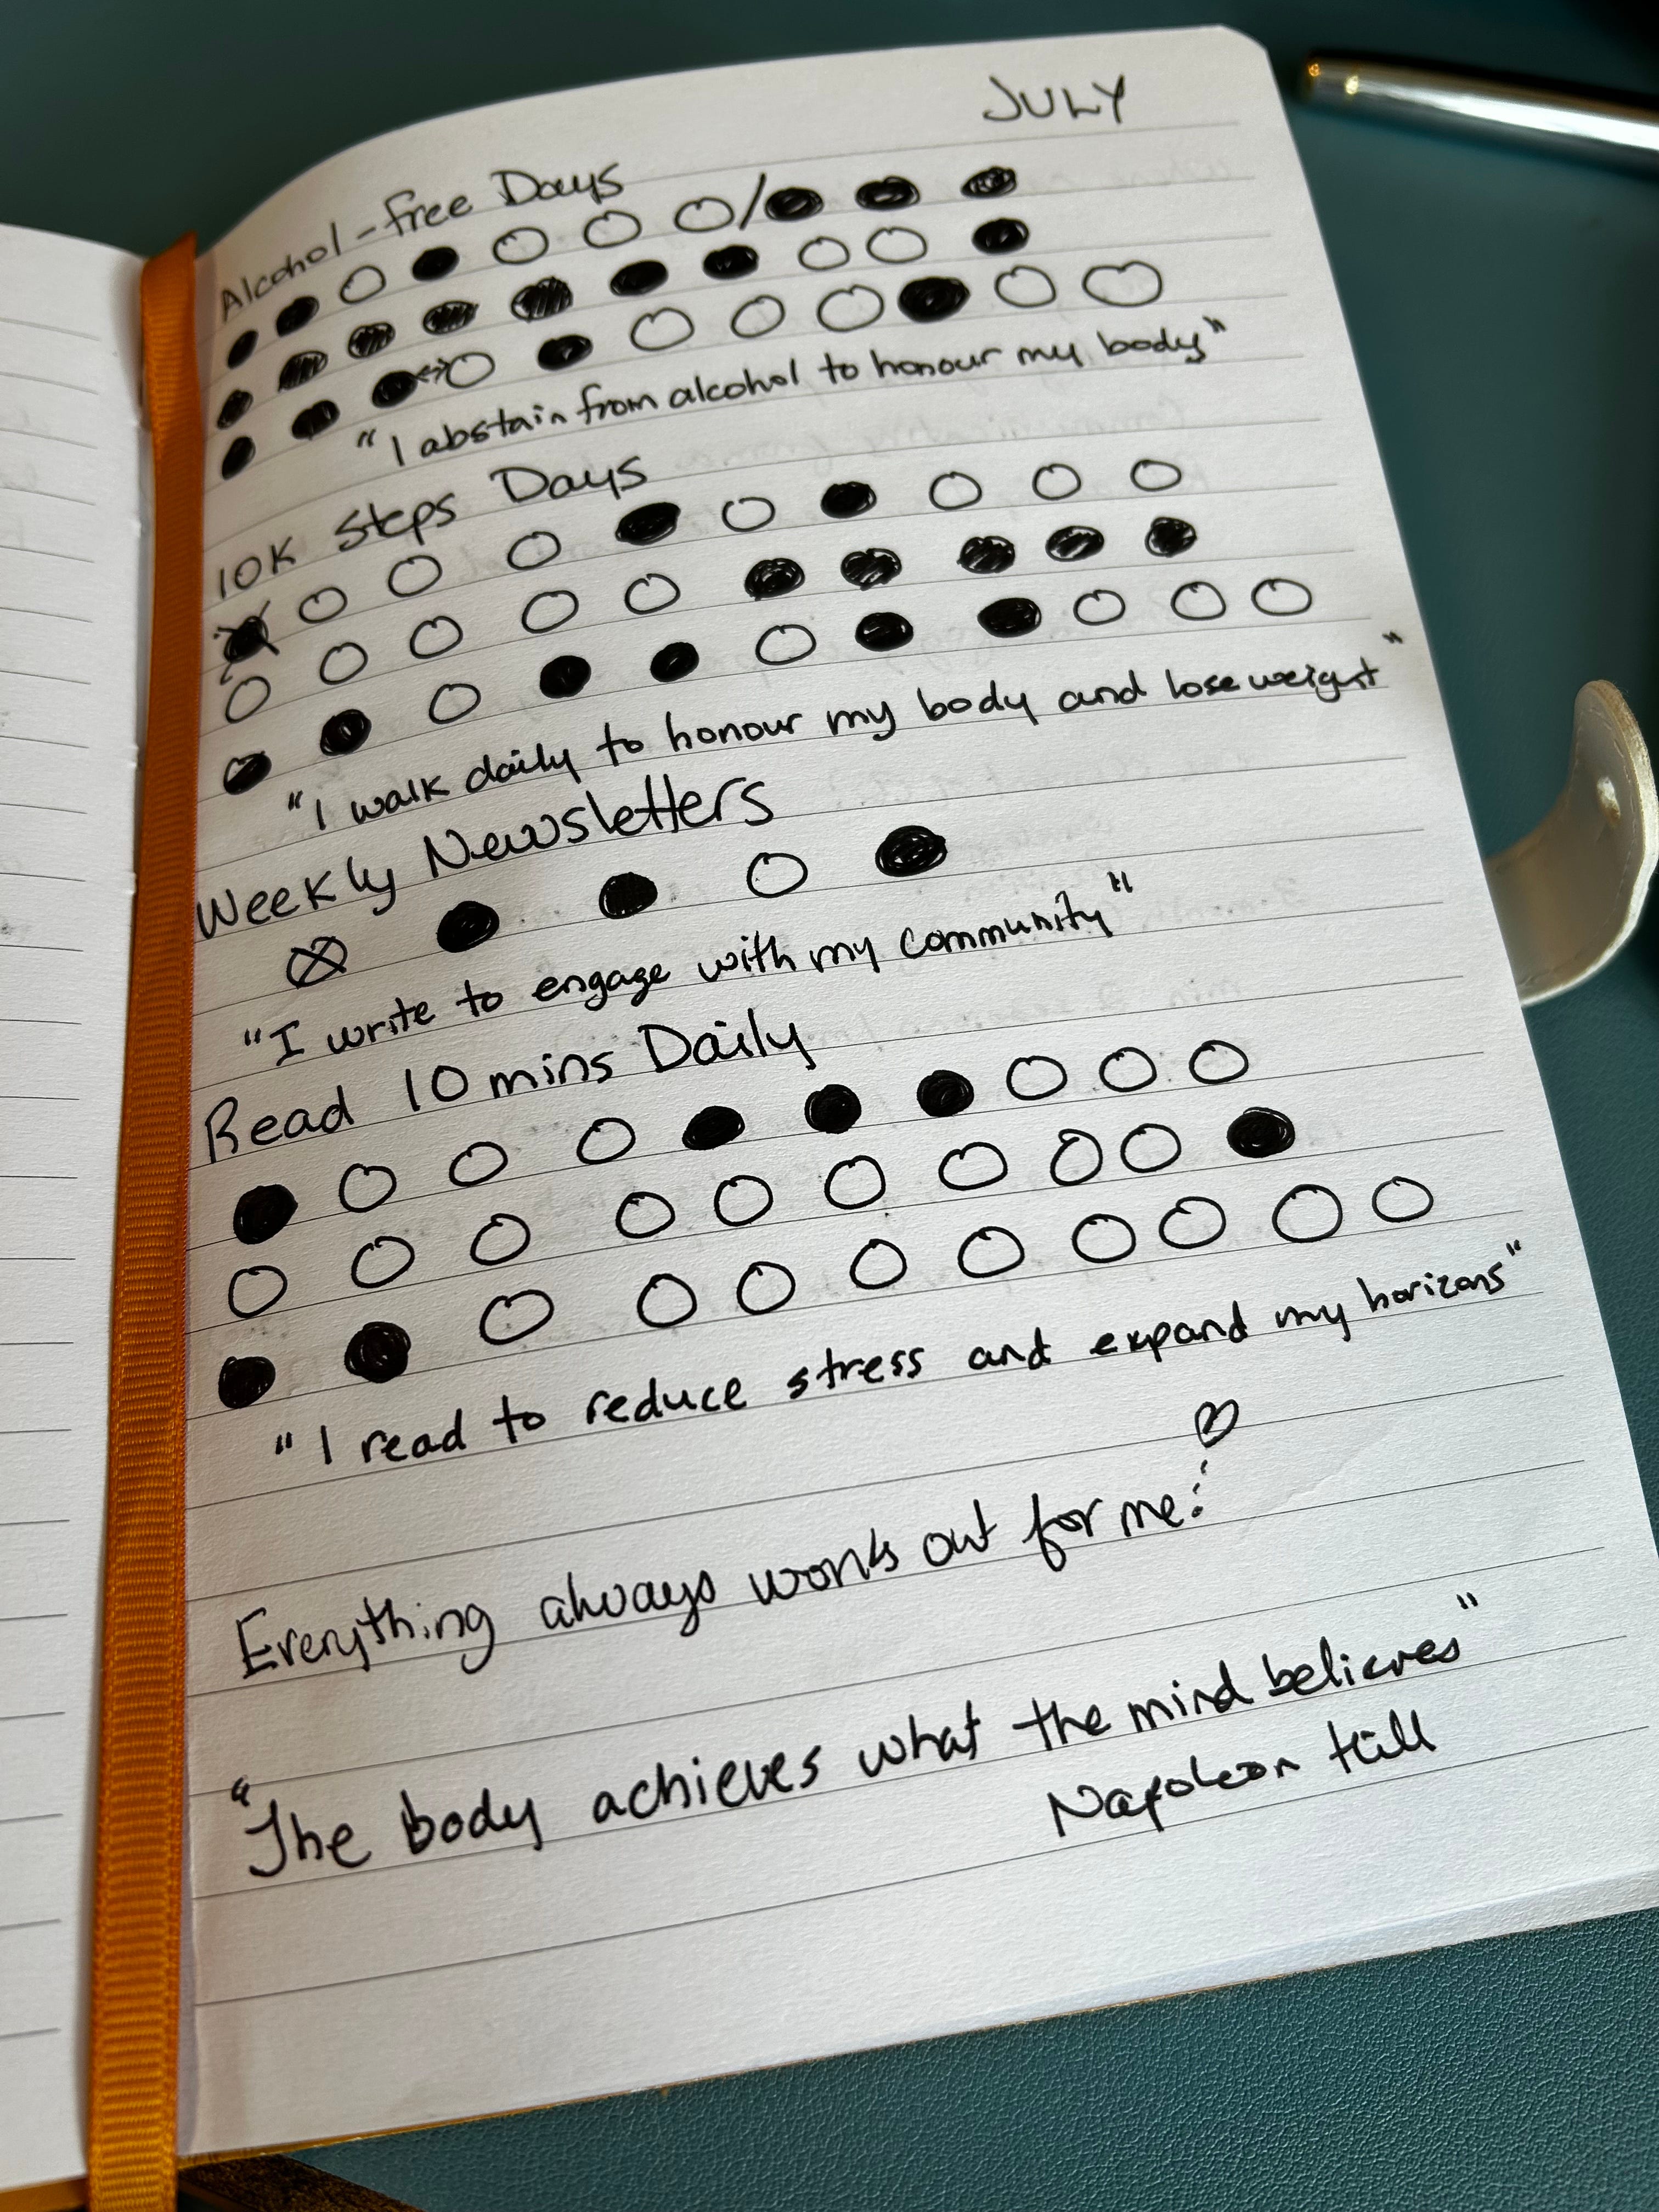 JULY
Alcohol-free Days
"I abstain from alcohol to honour my body"
10K Steps Days
"I walk daily to honour my body and lose weight"
Weekly Newsletters
"I write to engage with my community"
Read 10 mins Daily
"I read to reduce stress and expand my horizons"
Everything always works out for me!
"The body achieves what the mind believes"
Napoleon Hill